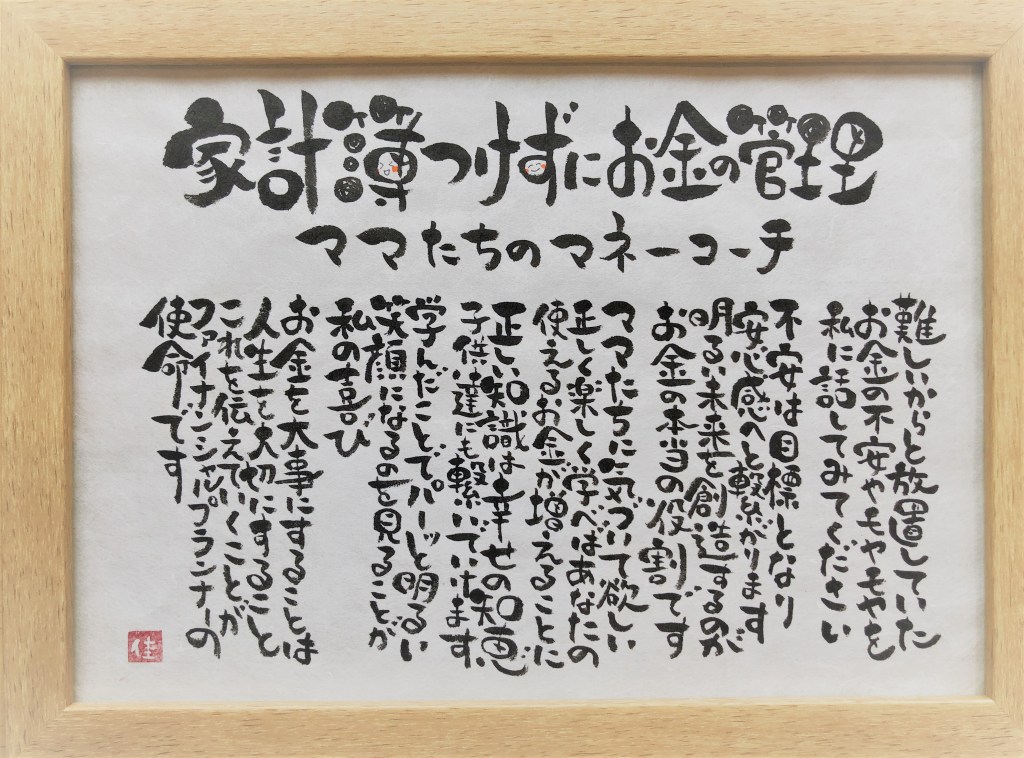 家計簿つけずにお金の管理
ママたちのマネーコーチ
難しいからと放置していた
お金の不安やモヤモヤを
私に話してみてください
不安は目標となり
安心感へと繋がります
明るい未来を創造するのが
お金の本当の役割です
ママたちに気づいて欲しい
正しく楽しく学べばあなたの
使えるお金が増えることに
正しい知識は幸せの知恵
子供達にも繋いでいけます
学んだことでパーッと明るい
笑顔になるのを見ることが
私の喜び
お金を大事にすることは
人生を大切にすること
これを伝えていくことが
ファイナンシャルプランナーの
使命です
佳